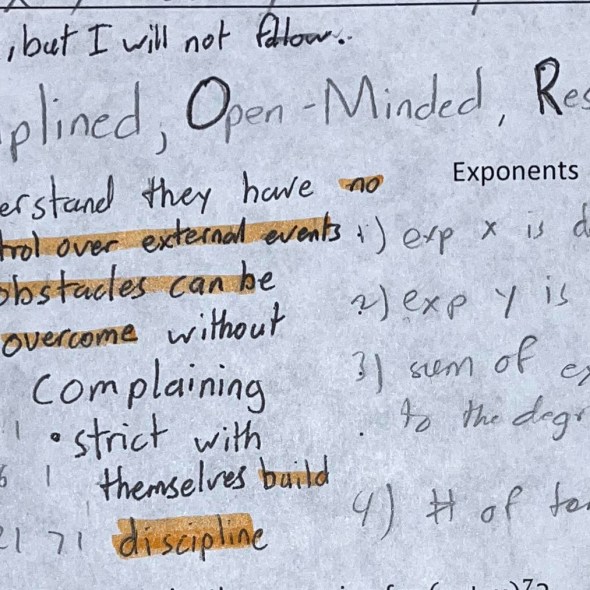 , but I will not follow..
plined, Open-Minded, Res
erstand they have no
trol over external events
obstacles can be
overcome without
complaining
• strict with
themselves build
discipline
1
6 1
21 71
Exponents
1) exp x is d
2) exp y is
3) sum of ex
to the degr
4) # of ter